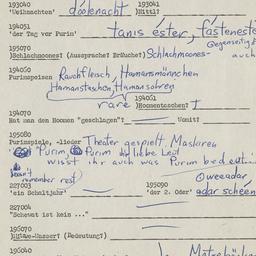 193040 193041
'Weihnachten' dóolenacht )Nittl?
194051
'der Tag vor Purin' tanis ester, fasteneste
Gegenseitig
195070
)Schlachmoones? (Aussprache? Bräuche?) Schlachmoones- auch
194060
Purimspeisen Rauchfleisch, Hamansmännchen
Hamanstaschen, Hamansohren
194061
rare )Homentaschen? †
194070
Hat man den Homen "geschlagen"? Womit?
195080
Purimspiele, -lieder Theater gespielt. Maskiren
Purim, Purim du liebe Leid
wisst ihr auch was Purim bedeut
(doesn't
remember rest) 0 weeadar
227003 195090
'ein Schaltjahr' 'der 2. Oder' adar schéen
227004
"Scheunt ist kein ..."
196070
(Bedeutung?)
196040